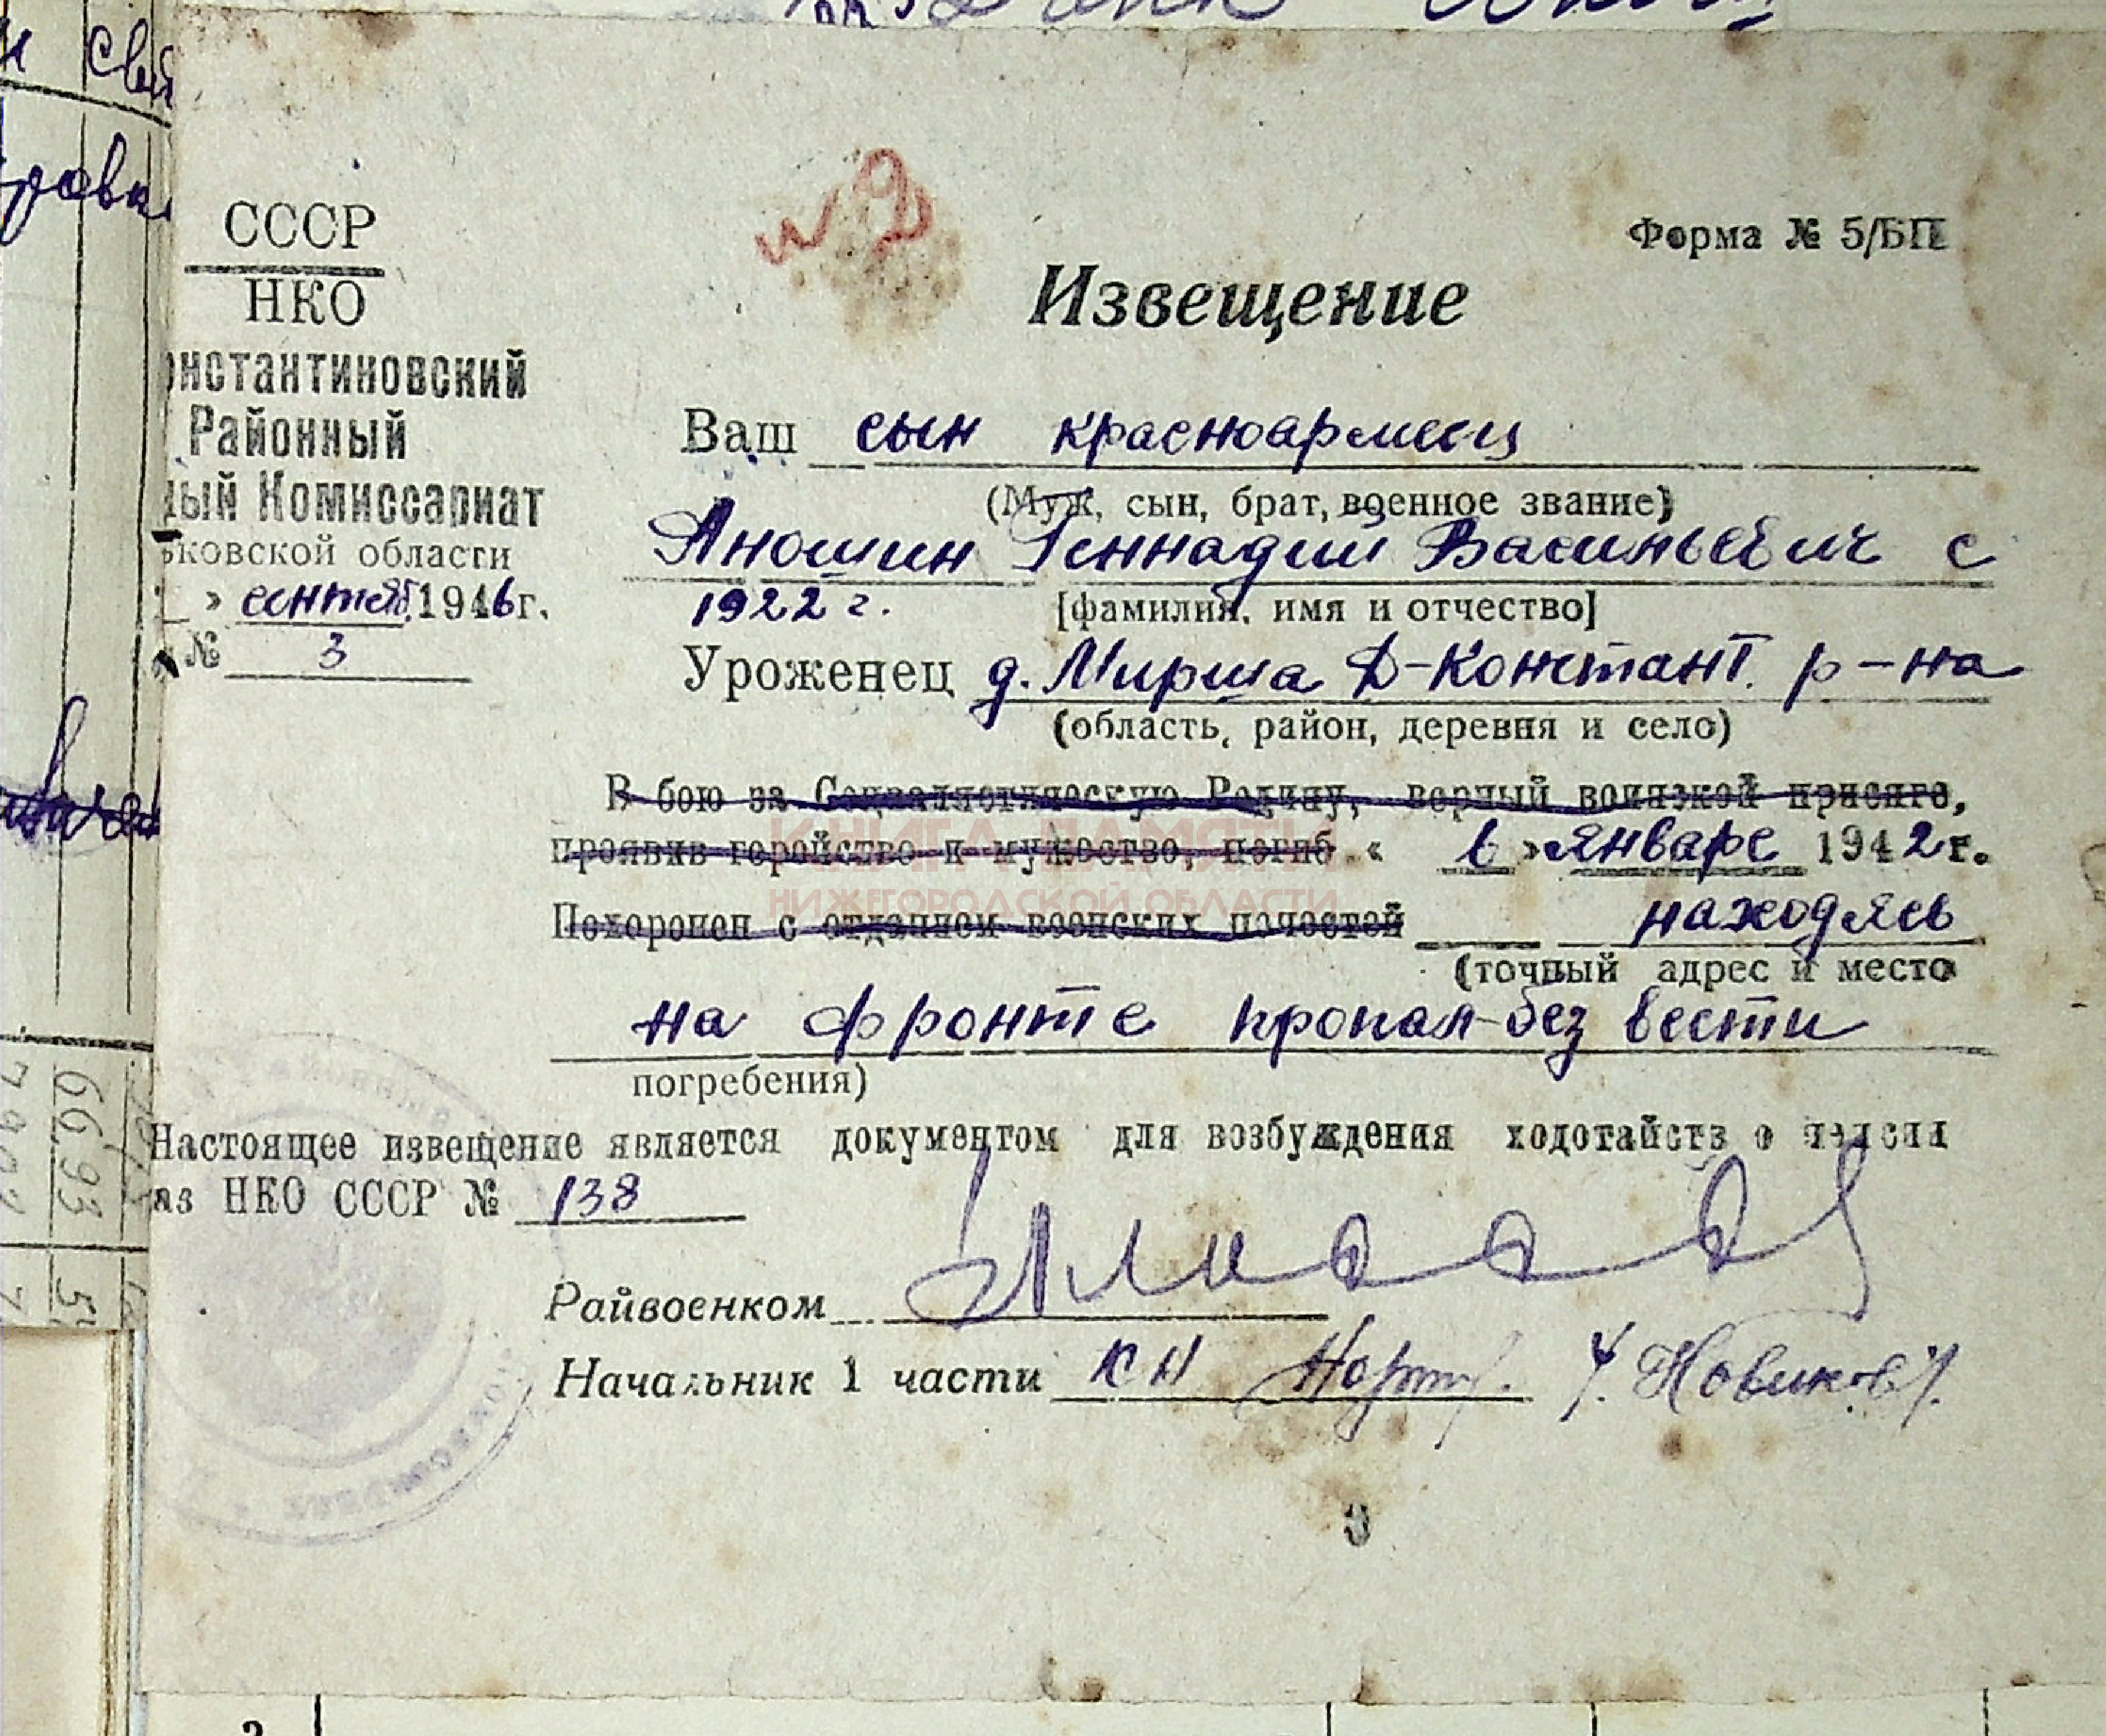 СССР
НКО
онстантиновский
Районный
ный Комиссариат
ьковской области
» сентяб. 1946 г.
№ 3
№ 2
Форма № 5/БП
Извещение
Ваш сын красноармеец
(Муж, сын, брат, военное звание)
Аношин Геннадий Васильевич с
1922 г. [фамилия, имя и отчество]
Уроженец д. Мирша Д-Констант. р-на
(область, район, деревня и село)
В бою за Социалистическую Родину, верный воинской присяге,
проявив геройство и мужество, погиб « в » январе 1942 г.
КНИГА ПАМЯТИ
НИЖЕГОРОДСКОЙ ОБЛАСТИ
Похоронен с отданием воинских почестей находясь
(точный адрес и место
на фронте пропал без вести
погребения)
Настоящее извещение является документом для возбуждения ходотайств о пенсии
аз НКО СССР № 138
Райвоенком
Начальник 1 части К Н /Новиков/.
6693